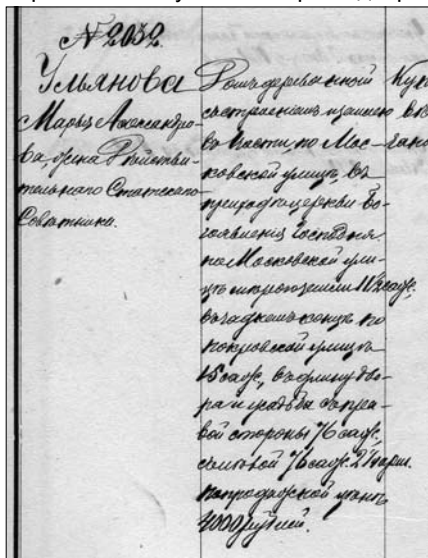 № 2032.
Ульянова
Марья Александро-
ва, жена Действи-
тельнаго Статскаго
Советника.
Домъ деревянный
съ строениемъ и землею
во части, по Мос-
ковской улицѣ, въ
приходѣ церкви Бо-
гоявления Господня.
по Московской ули-
цѣ 11½ саж.,
въ заднемъ концѣ по
покровской улицѣ
15 саж., въ длину дво-
ра и усадьбы съ пра-
вой стороны 76 саж.,
съ левой 76 саж. 2¼ арш.
по продажной цѣнѣ
4000 рублей.